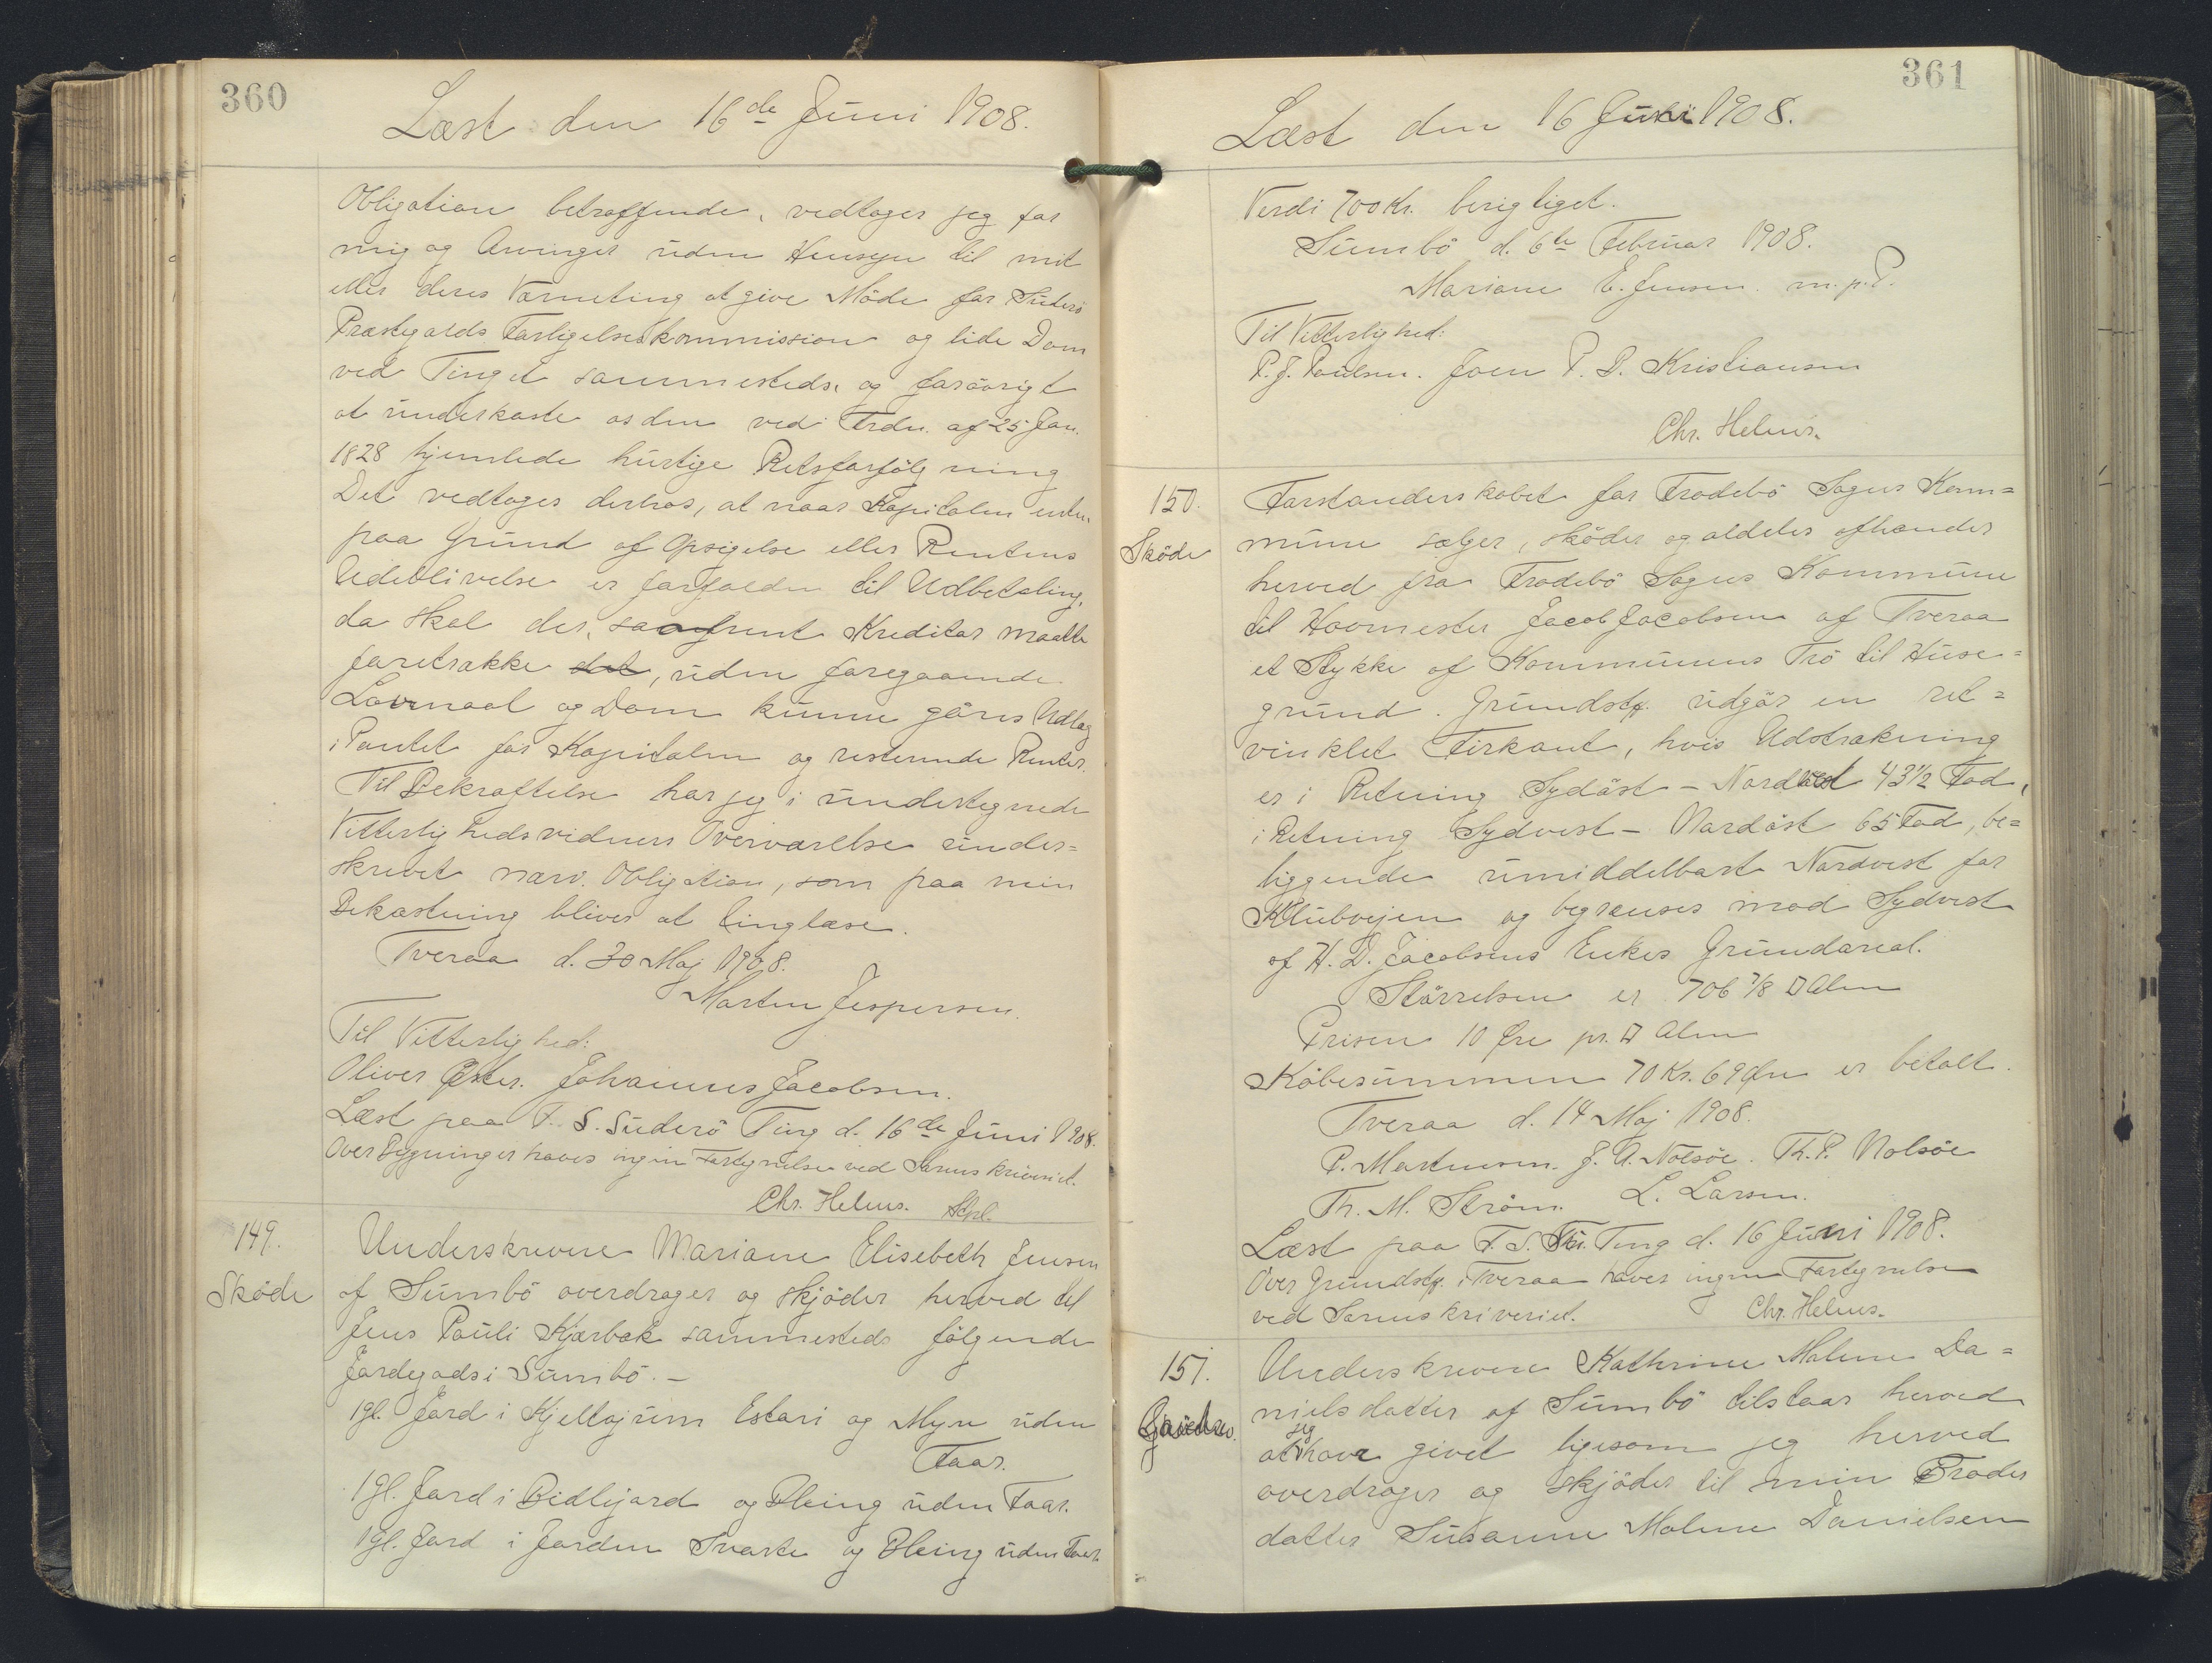 360
Læst den 16de Juni 1908.
Obligation betræffende, vedtager jeg for
mig og Arvinger uden Hensyn til mit
eller deres Værneting at give Möde for Suderö
Præstegalds Forligelseskommission og lide Dom
ved Tinget sammesteds, og forövrigt
at underkaste os den ved Frdn. af 25 Jan.
1828 hjemlede hurtige Retsforfölgning
Det vedtages derhos, at naar Kapitalen enten
paa Grund af Opsigelse eller Rentens
Udeblivelse er forfalden til Udbetaling,
da skal der, saafremt Kreditor maatte
foretrække det, uden foregaaende
Lovmaal og Dom kunne göres Udlæg
i Pantet for Kapitalen og resterende Renter.
Til Bekræftelse har jeg i undertegnede
Vitterlighedsvidners Overværelse under=
skrevet nærv. Obligation, som paa min
Bekostning bliver at tinglæse.
Tveraa d. 30 Maj 1908.
Morten Jespersen.
Til Vitterlighed:
Oliver Øster. Johannes Jacobsen.
Læst paa F. S. Suderö Ting d. 16de Juni 1908.
Over Bygninger haves ingen Fortegnelse ved Sorenskriveriet.
Chr. Helms.
149.
Skøde
Underskrevne Mariane Elisebeth Jensen
af Sumbö overdrager og skjöder herved til
Jens Pauli Kjærbæk sammesteds fölgende
Jordegods i Sumbö. -
1gl. Jord i Kjeltajrum Estari og Myre uden
Faar.
1gl. Jord i Bidlijard og Bleing uden Faar.
1gl. Jord i Jorden Svarte og Bleing uden Faar.
361
Læst den 16 Juni 1908.
Verdi 700 Kr. berigtiget.
Sumbö d. 6te Februar 1908.
Mariane E. Jensen. m. p. P.
Til Vitterlighed:
P. J. Poulsen. Joen P. D. Kristiansen
Chr. Helms.
150.
Skøde
Forstanderskabet for Frodebö Sogns Kom=
mune sælger, sköder og aldeles afhænder
herved fra Frodebö Sogns Kommune
til Hovmester Jacob Jacobsen af Tveraa
et Stykke af Kommunens Trö til Huse=
grund. Grundstk. udgör en ret=
vinklet Firkant, hvis Udstrækning
er i Retning Sydöst - Nordvest 43½ Fod,
i Retning Sydvest - Nordöst 65 Fod, be=
liggende umiddelbart Nordvest for
Klubvejen og begrænses mod Sydvest
af H. D. Jacobsens Enkes Grundareal.
Störrelsen er 706 7/8 □ Alen
Prisen 10 Øre pr. □ Alen
Købesummen 70 Kr. 69 Øre er betalt.
Tveraa d. 14 Maj 1908.
P. Mortensen. J. A. Nolsöe. Th. P. Nolsöe
Th. M. Ström. L. Larsen.
Læst paa F. S. Ting d. 16 Juni 1908.
Over Grundstk. i Tveraa haves ingen Fortegnelse
ved Sorenskriveriet. Chr. Helms.
151.
Underskrevne Kathrine Malene Da=
nielsdatter af Sumbö tilstaar herved
at jeg have givet ligesom jeg herved
overdrager og skjöder til min Broder
datter Susanne Malene Danielsen